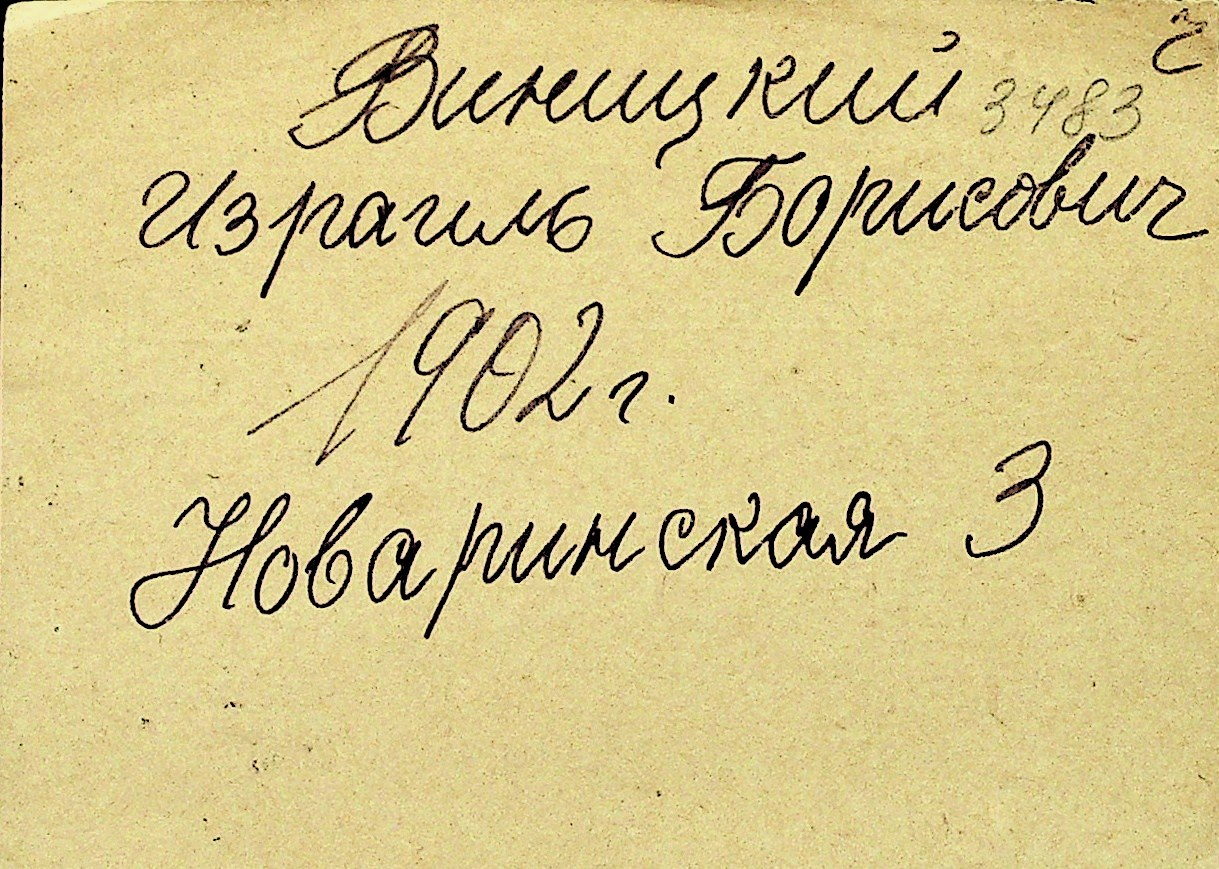 Виницкий 3483
Израиль Борисович
1902 г.
Новаринская 3